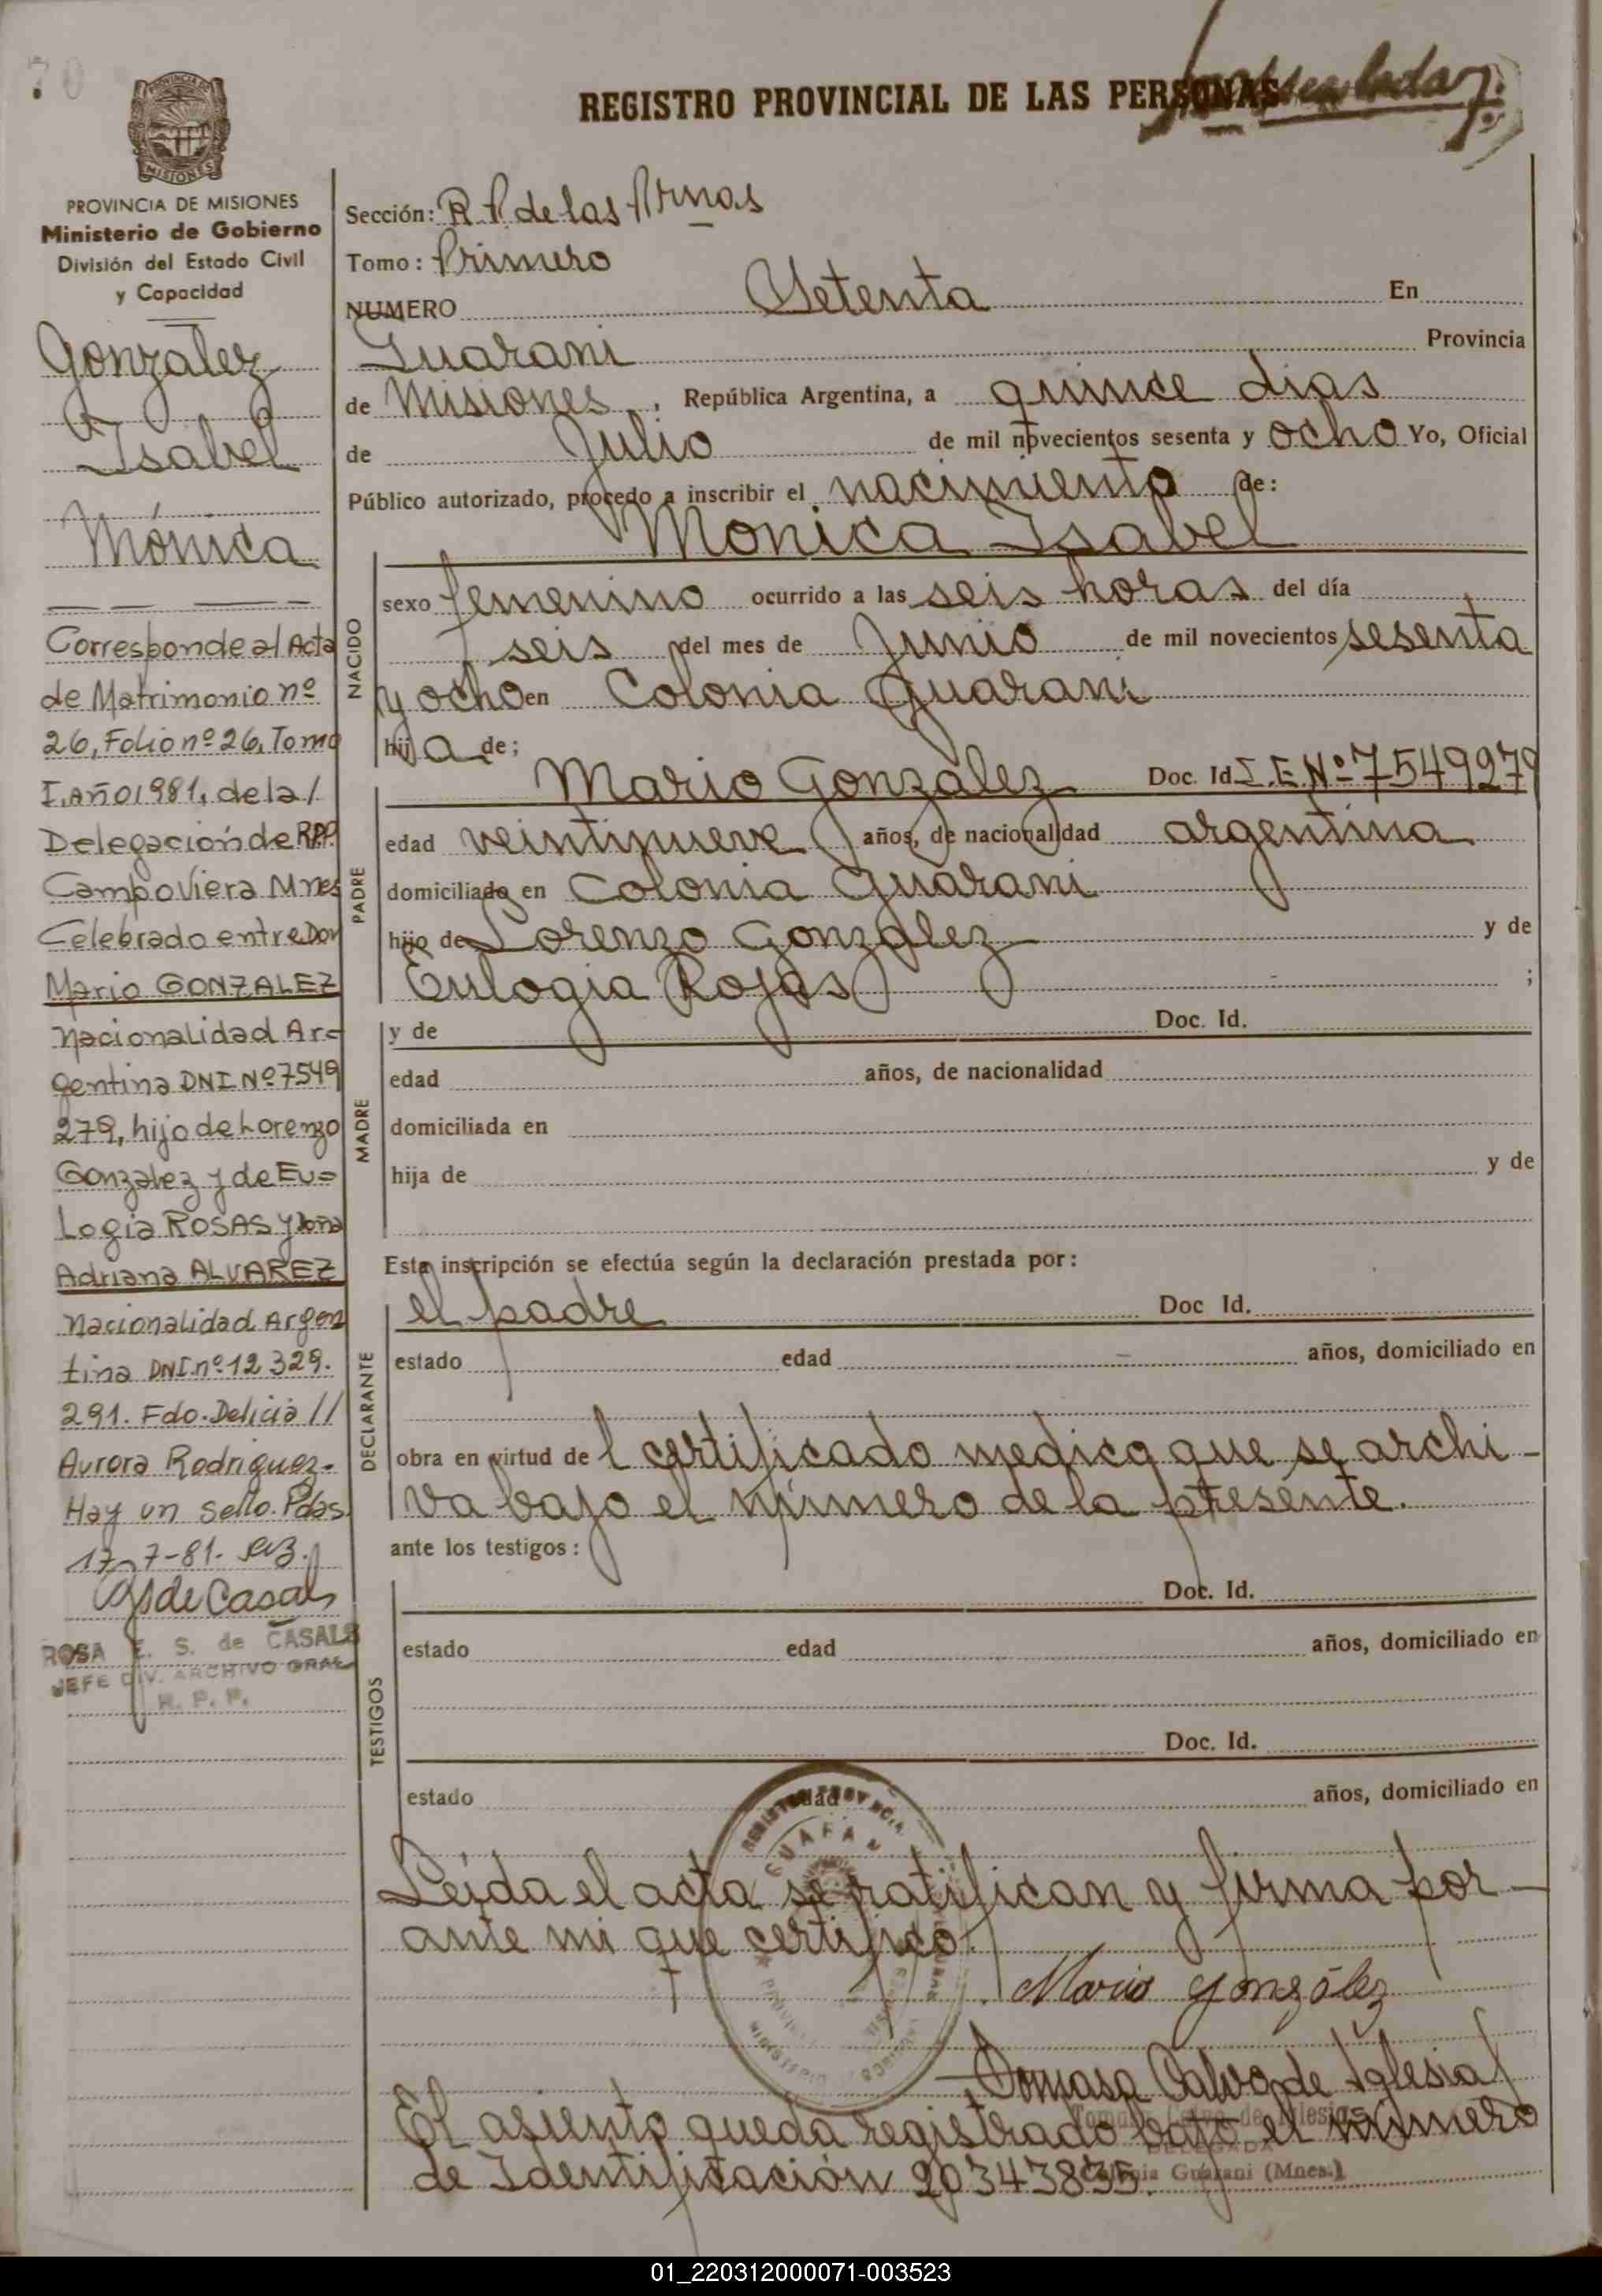 70
REGISTRO PROVINCIAL DE LAS PERSONAS
PROVINCIA DE MISIONES
MISIONES
PROVINCIA DE MISIONES
Ministerio de Gobierno
División del Estado Civil
y Capacidad
Gonzalez
Isabel
Mónica
Corresponde al Acta
de Matrimonio nº
26, Folio nº 26, Tomo
I, Año 1981, de la /
Delegación de R.P.P.
Campo Viera Mnes
Celebrado entre Don
Mario GONZALEZ
Nacionalidad Ar=
gentina DNI Nº 7549
279, hijo de Lorenzo
Gonzalez y de Eu=
Logia ROSAS y Doña
Adriana ALVAREZ
Nacionalidad Argen
tina DNI. nº 12 329.
291. Fdo. Delicia //
Aurora Rodriguez.-
Hay un Sello. Pdas
17-7-81.
de Casals
ROSA E. S. de CASALS
JEFE DIV. ARCHIVO GRAL
R. P. P.
Sección: R. P. de las Prnas
Tomo: Primero
NUMERO Setenta En
Guarani Provincia
de Misiones, República Argentina, a quince dias
de Julio de mil novecientos sesenta y ocho Yo, Oficial
Público autorizado, procedo a inscribir el nacimiento de:
Monica Isabel
NACIDO
sexo femenino ocurrido a las seis horas del día
seis del mes de Junio de mil novecientos sesenta
y ocho en Colonia Guarani
hija de;
PADRE
Mario Gonzalez Doc. Id. L.E. Nº 7549279
edad veintinueve años, de nacionalidad argentina
domiciliado en Colonia Guarani
hijo de Lorenzo Gonzalez y de
Eulogia Rojas ;
MADRE
y de Doc. Id.
edad años, de nacionalidad
domiciliada en
hija de y de
Esta inscripción se efectúa según la declaración prestada por:
DECLARANTE
el padre Doc Id.
estado edad años, domiciliado en
obra en virtud del certificado medico que se archi-
va bajo el número de la presente.
ante los testigos:
TESTIGOS
Doc. Id.
estado edad años, domiciliado en
Doc. Id.
estado edad años, domiciliado en
Leida el acta se ratifican y firma por-
ante mi que certifico.
Mario González
Tomasa Calvo de Iglesias
Tomasa Calvo de Iglesias
DELEGADA
Colonia Guarani (Mnes.)
El asiento queda registrado bajo el número
de Identificación 20343835.
01_220312000071-003523